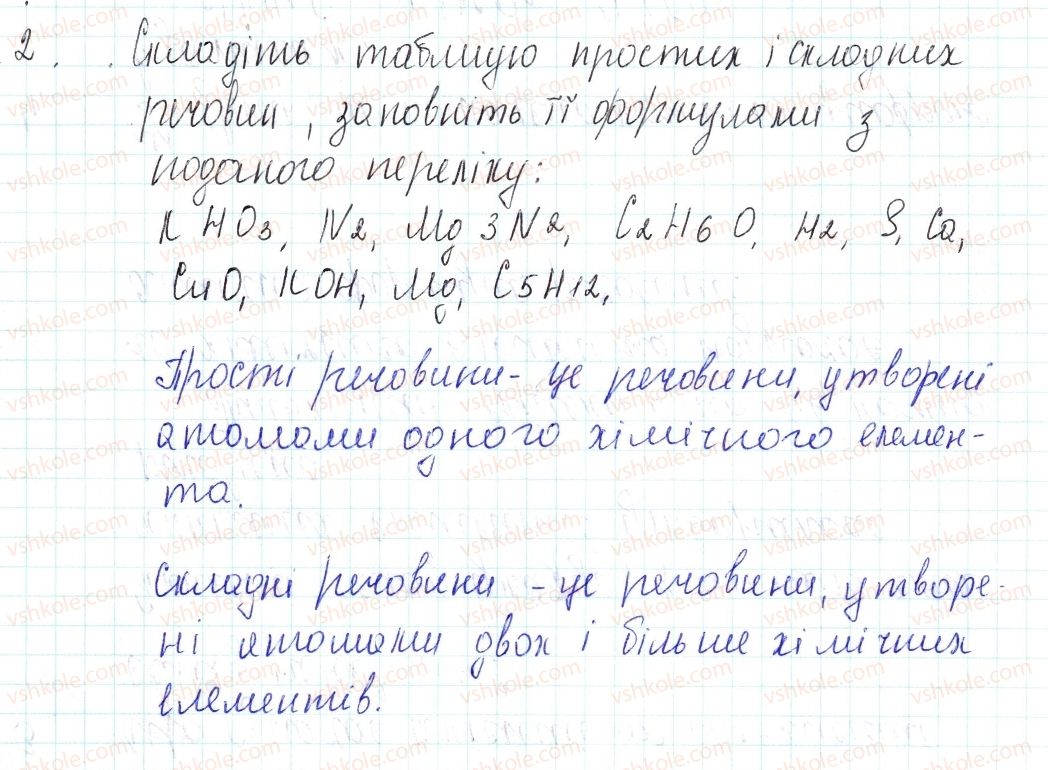 2. Складіть таблицю простих і складних
речовин, заповніть її формулами з
поданого переліку:
K HO3, N2, Mg 3 N2, C2H6O, H2, S, Ca,
CuO, KOH, Mg, C5H12,
Прості речовини - це речовини, утворені
атомами одного хімічного елемен-
та.
Складні речовини - це речовини, утворе-
ні атомами двох і більше хімічних
елементів.